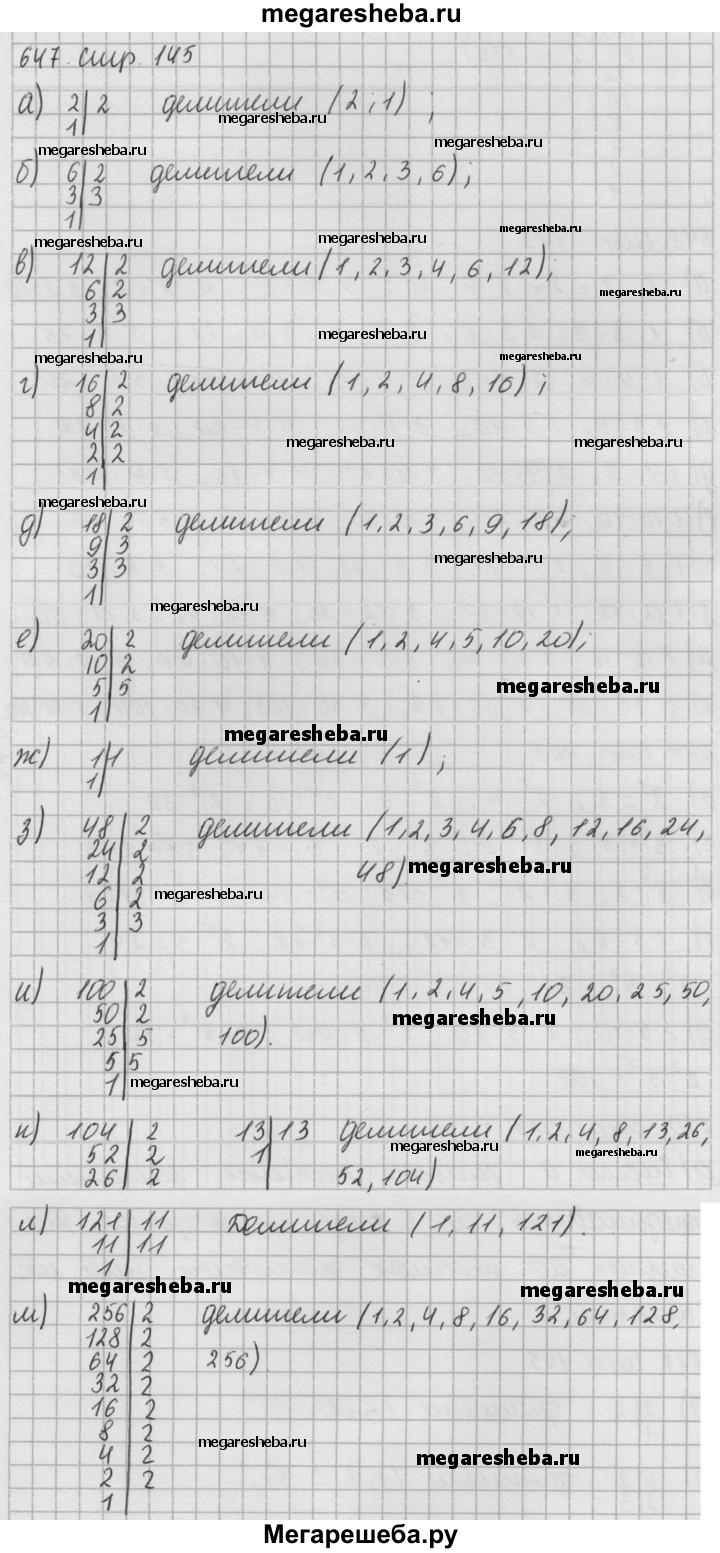 megaresheba.ru
647. стр. 145
а) 2 | 2 делители (2, 1) ;
megaresheba.ru
1 |
megaresheba.ru
б) 6 | 2 делители (1, 2, 3, 6);
3 | 3
1 |
megaresheba.ru megaresheba.ru megaresheba.ru
в) 12 | 2 делители (1, 2, 3, 4, 6, 12);
6 | 2
megaresheba.ru
3 | 3
1 | megaresheba.ru
megaresheba.ru megaresheba.ru
г) 16 | 2 делители (1, 2, 4, 8, 16) ;
8 | 2
4 | 2 megaresheba.ru megaresheba.ru
2 | 2
1 |
megaresheba.ru
д) 18 | 2 делители (1, 2, 3, 6, 9, 18);
9 | 3 megaresheba.ru
3 | 3
1 | megaresheba.ru
е) 20 | 2 делители (1, 2, 4, 5, 10, 20);
10 | 2
5 | 5 megaresheba.ru
1 |
megaresheba.ru
ж) 1 | 1 делители (1) ;
1 |
з) 48 | 2 делители (1, 2, 3, 4, 6, 8, 12, 16, 24,
24 | 2 48) megaresheba.ru
12 | 2
6 | 2 megaresheba.ru
3 | 3
1 |
и) 100 | 2 делители (1, 2, 4, 5, 10, 20, 25, 50,
50 | 2 megaresheba.ru
25 | 5 100).
5 | 5
1 | megaresheba.ru
к) 104 | 2 13 | 13 делители (1, 2, 4, 8, 13, 26,
megaresheba.ru megaresheba.ru
52 | 2 1 |
26 | 2 52, 104)
л) 121 | 11 Делители (1, 11, 121).
11 | 11
1 |
megaresheba.ru megaresheba.ru
м) 256 | 2 делители (1, 2, 4, 8, 16, 32, 64, 128,
128 | 2
64 | 2 256)
32 | 2
16 | 2
8 | 2 megaresheba.ru
4 | 2 megaresheba.ru
2 | 2
1 |
Мегарешеба.ру